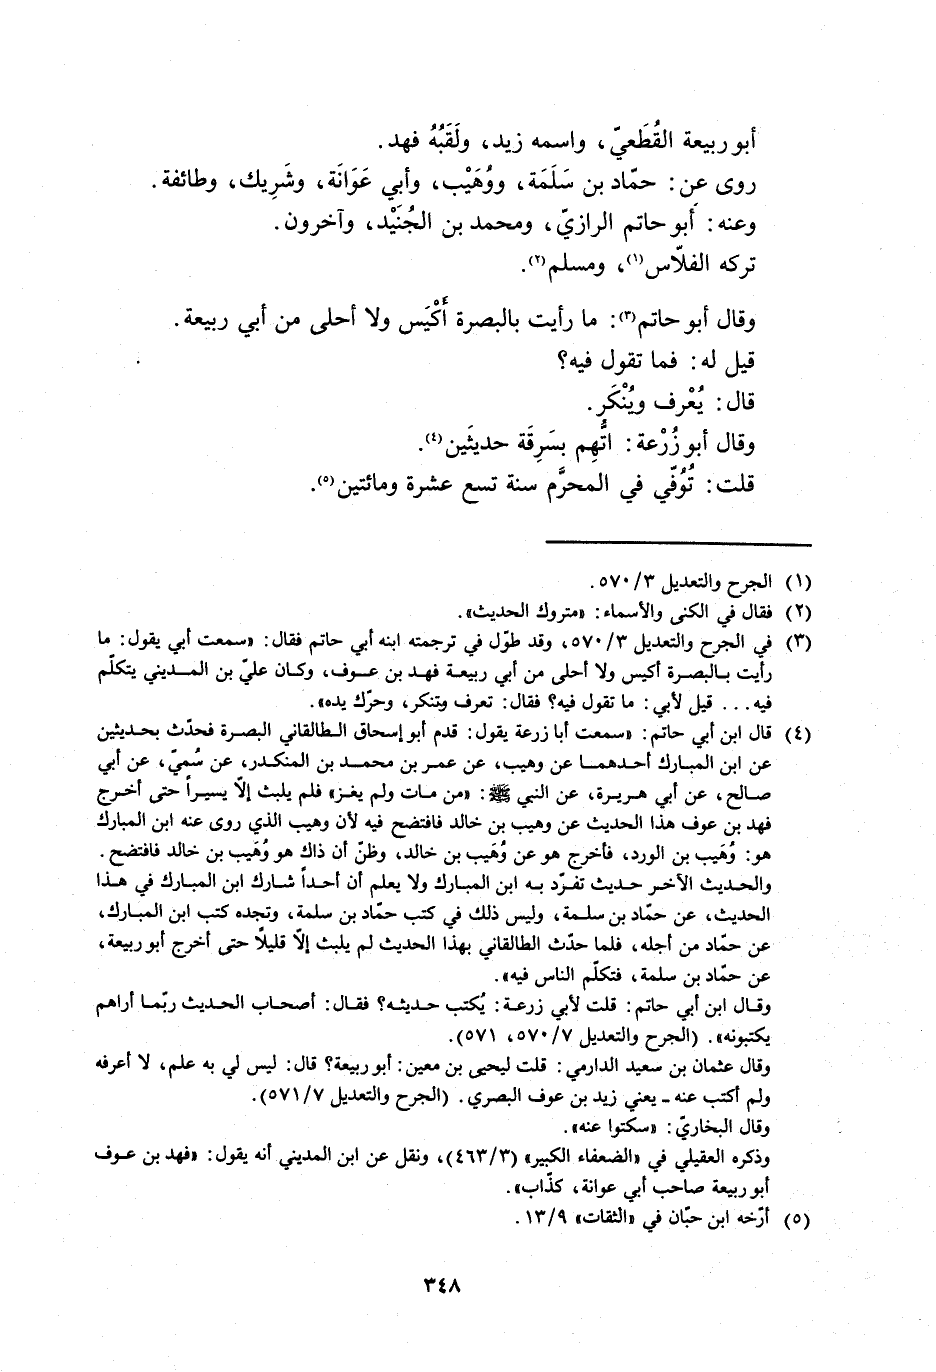 أبو ربيعة القُطَعيّ، واسمه زيد، ولَقَبُهُ فهد.
روى عن: حمّاد بن سَلَمَة، ووُهَيْب، وأبي عَوَانَة، وشَرِيك، وطائفة.
وعنه: أبو حاتم الرازيّ، ومحمد بن الجُنَيْد، وآخرون.
تركه الفلّاس(١)، ومسلم(٢).
وقال أبو حاتم(٣): ما رأيت بالبصرة أَكْيَس ولا أحلى من أبي ربيعة.
قيل له: فما تقول فيه؟
قال: يُعْرف ويُنْكَر.
وقال أبو زُرْعة: اتُّهِم بسَرِقَة حديثَين(٤).
قلت: تُوُفّي في المحرَّم سنة تسع عشرة ومائتين(٥).
(١) الجرح والتعديل ٥٧٠/٣.
(٢) فقال في الكنى والأسماء: «متروك الحديث».
(٣) في الجرح والتعديل ٥٧٠/٣، وقد طوّل في ترجمته ابنه أبي حاتم فقال: «سمعت أبي يقول: ما
رأيت بالبصرة أكيس ولا أحلى من أبي ربيعة فهد بن عوف، وكان عليّ بن المديني يتكلّم
فيه... قيل لأبي: ما تقول فيه؟ فقال: تعرف وتنكر، وحرّك يده».
(٤) قال ابن أبي حاتم: «سمعت أبا زرعة يقول: قدم أبو إسحاق الطالقاني البصرة فحدّث بحديثين
عن ابن المبارك أحدهما عن وهيب، عن عمر بن محمد بن المنكدر، عن سُميّ، عن أبي
صالح، عن أبي هريرة، عن النبي ﷺ: «من مات ولم يغز» فلم يلبث إلّا يسيراً حتى أخرج
فهد بن عوف هذا الحديث عن وهيب بن خالد فافتضح فيه لأن وهيب الذي روى عنه ابن المبارك
هو: وُهَيب بن الورد، فأخرج هو عن وُهَيب بن خالد، وظنّ أن ذاك هو وُهَيب بن خالد فافتضح.
والحديث الآخر حديث تفرّد به ابن المبارك ولا يعلم أن أحداً شارك ابن المبارك في هذا
الحديث، عن حمّاد بن سلمة، وليس ذلك في كتب حمّاد بن سلمة، وتجده كتب ابن المبارك،
عن حمّاد من أجله، فلما حدّث الطالقاني بهذا الحديث لم يلبث إلّا قليلاً حتى أخرج أبو ربيعة،
عن حمّاد بن سلمة، فتكلّم الناس فيه».
وقال ابن أبي حاتم: قلت لأبي زرعة: يُكتب حديثه؟ فقال: أصحاب الحديث ربّما أراهم
يكتبونه». (الجرح والتعديل ٥٧٠/٧، ٥٧١).
وقال عثمان بن سعيد الدارمي: قلت ليحيى بن معين: أبو ربيعة؟ قال: ليس لي به علم، لا أعرفه
ولم أكتب عنه ـ يعني زيد بن عوف البصري. (الجرح والتعديل ٥٧١/٧).
وقال البخاريّ: «سكتوا عنه».
وذكره العقيلي في «الضعفاء الكبير» (٤٦٣/٣)، ونقل عن ابن المديني أنه يقول: «فهد بن عوف
أبو ربيعة صاحب أبي عوانة، كذّاب».
(٥) أرّخه ابن حبّان في «الثقات» ١٣/٩.
٣٤٨